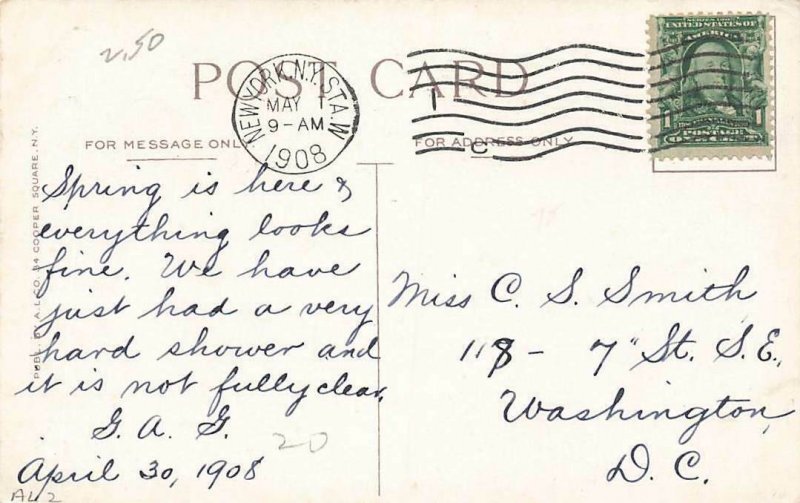 2.50
POST CARD
NEW YORK, N.Y. STA. W
MAY 1
9-AM
1908
1
C
SERIES 1902
UNITED STATES OF
AMERICA
1 1
POSTAGE
ONE CENT
FOR MESSAGE ONLY
FOR ADDRESS ONLY
Spring is here &
everything looks
fine. We have
just had a very
hard shower and
it is not fully clear.
G. A. G.
April 30, 1908
20
AL2
Miss C. S. Smith
118 - 7" St. S.E.,
Washington,
D. C.
PUBL. BY A.L. CO. 34 COOPER SQUARE, N.Y.